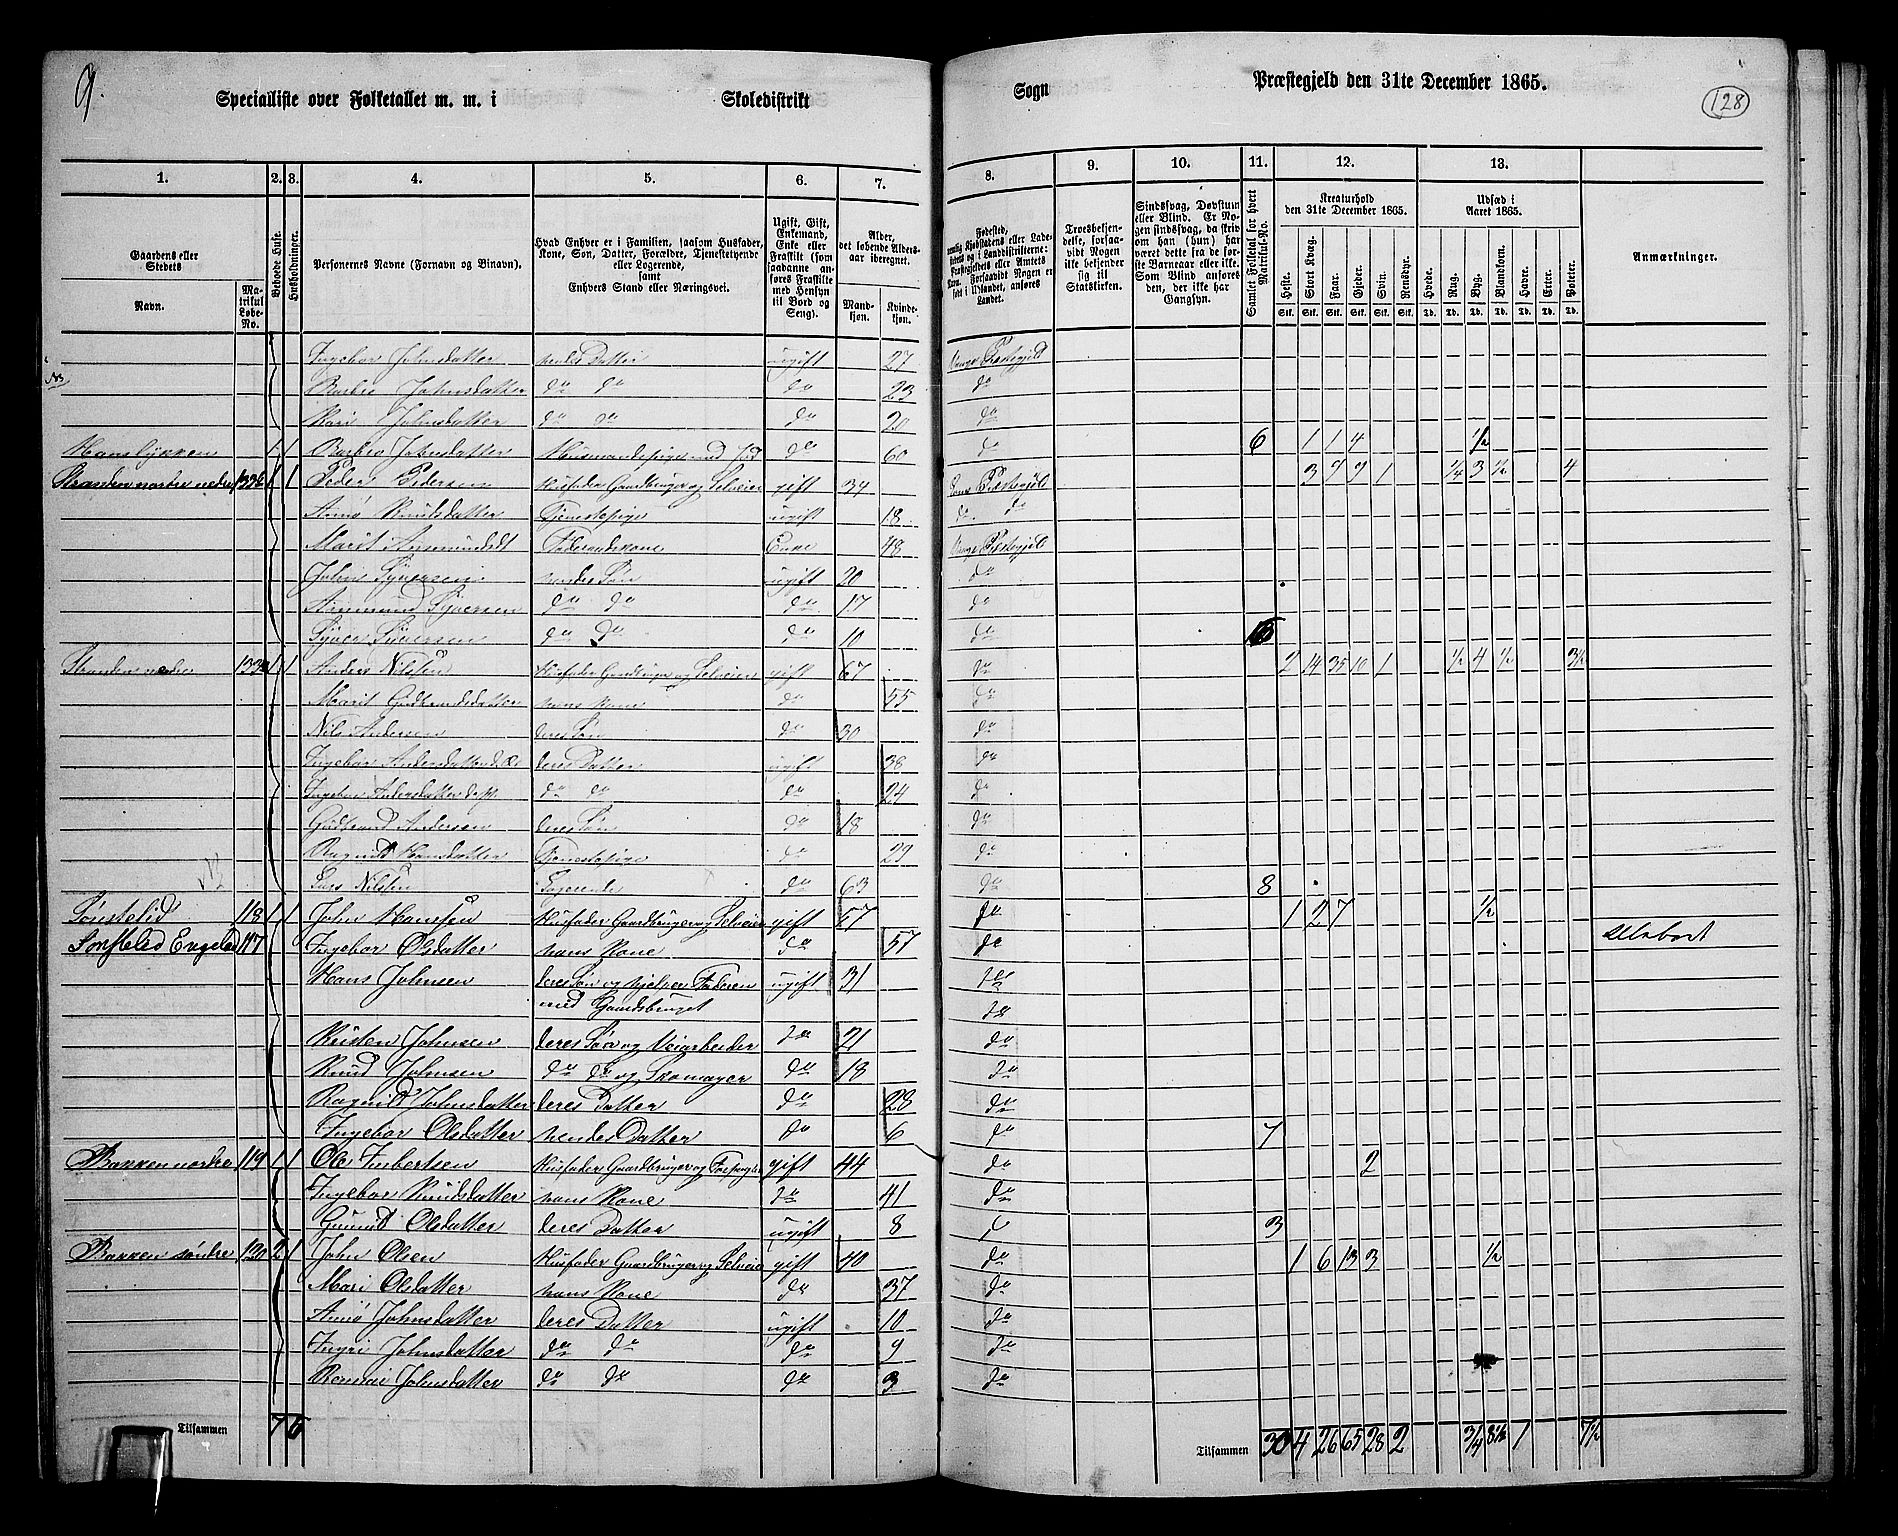 9.
Specialliste over Folketallet m. m. i Skoledistrikt Sogn Præstegjeld den 31te December 1865.
128
1. 2. 3. 4. 5. 6. 7. 8. 9. 10. 11. 12. 13.
Gaardens eller Stedets
Navn.
Matrikul Løbe-No.
Beboede Huse.
Husholdninger.
Personernes Navne (Fornavn og Binavn).
Hvad Enhver er i Familien, saasom Husfader, Kone, Søn, Datter, Forældre, Tjenestetyende eller Logerende, samt Enhvers Stand eller Næringsvei.
Ugift, Gift, Enkemand, Enke eller Fraskilt (som saadanne anføres Fraskilte med Hensyn til Bord og Seng).
Alder, det løbende Aldersaar iberegnet.
Mandkjøn. Kvindekjøn.
Fødested,
Troesbekjendelse, forsaavidt Nogen ikke bekjender sig til Statskirken.
Sindssvag, Døvstum eller Blind. Er Nogen sindssvag, da skriv om han (hun) har været dette fra de første Barneaar eller ikke. Som Blind anføres den, der ikke har Gangsyn.
Samlet Folketal for hvert Matrikul-No.
Kreaturhold den 31te December 1865.
Heste. Stort Kvæg. Faar. Gjeder. Svin. Rensdyr.
Udsæd i Aaret 1865.
Hvede. Rug. Byg. Blandkorn. Havre. Erter. Poteter.
Anmærkninger.
Ingebor Johnsdatter hendes Datter ugift 27 Vangs Præstegjeld
Barbro Johnsdatter do do do 23 do
Kari Johnsdatter do do do 20 do
Hanslykken 1 1 Barbro Johnsdatter Husmandspige med Jord do 60 do 6 1 1 4 1/2
Stranden nordre nedre 1 1 Peder Pedersen Husfader Gaardbruger og Selveier gift 34 Præstegjeld 3 7 9 1 1/4 3 1/2 4
Knudsdatter Tjenestepige ugift 18 do do
Marit Enke 48 Vangs Præstegjeld
John Syversen hendes Søn ugift 20 do
Syversen do do do 17 do
Syver Syversen do do do 10 do
Stranden nedre 1 1 Anders Nilsen Husfader Gaardbruger og Selveier gift 67 do 2 14 35 10 1 1/2 4 1/2 3 1/2
Marit Gudbrandsdatter hans Kone do 55 do
Nils Andersen deres Søn do 30 do
Ingebor Andersdatter deres Datter ugift 38 do
Ingebor Andersdatter do do do 24 do
Gudbrand Andersen deres Søn do 18 do
Ragnild Hansdatter Tjenestepige do 29 do
Lars Nilsen Logerende do 63 do 8
Sønstelid 118 1 1 John Hansen Husfader Gaardbruger og Selveier gift 57 do 1 2 7 1/2
Sønstelid 117 Ingebor Olsdatter hans Kone do 57 do
Hans Johnsen deres Søn og hjelper Faderen ugift 31 do
med Gaardsbruget do
Kristen Johnsen deres Søn og Veiarbeider do 21 do
Knud Johnsen do do og Skomager do 18 do
Ragnild Johnsdatter deres Datter do 28 do
Ingebor Olsdatter hendes Datter do 6 do 7
Bakken nordre 119 1 1 Ole Husfader Gaardbruger og gift 44 do 2
Ingebor Knudsdatter hans Kone do 41 do
Olsdatter deres Datter ugift 8 do 3
Bakken søndre 120 2 1 John Olsen Husfader Gaardbruger og Selveier gift 40 do 1 6 13 3 1/2
Mari Olsdatter hans Kone do 37 do
Johnsdatter deres Datter ugift 10 do
Ingri Johnsdatter do do do 9 do
Johnsdatter do do do 3 do
Tilsammen 7 6
Tilsammen 30 4 26 65 28 2 3/4 8 1/2 1 7 1/2